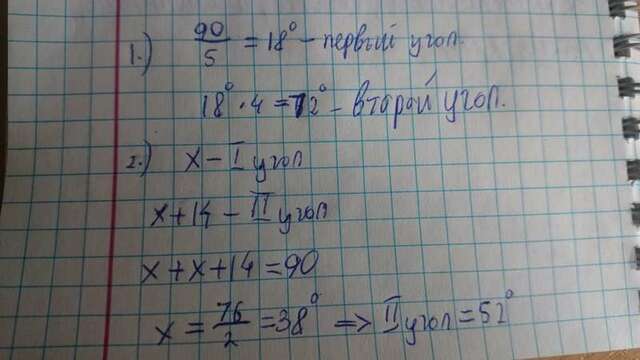 1.) 90/5 = 18° – первый угол.
18° · 4 = 72° – второй угол.
2.) x – I угол
x + 14 – II угол
x + x + 14 = 90
x = 76/2 = 38° => II угол = 52°